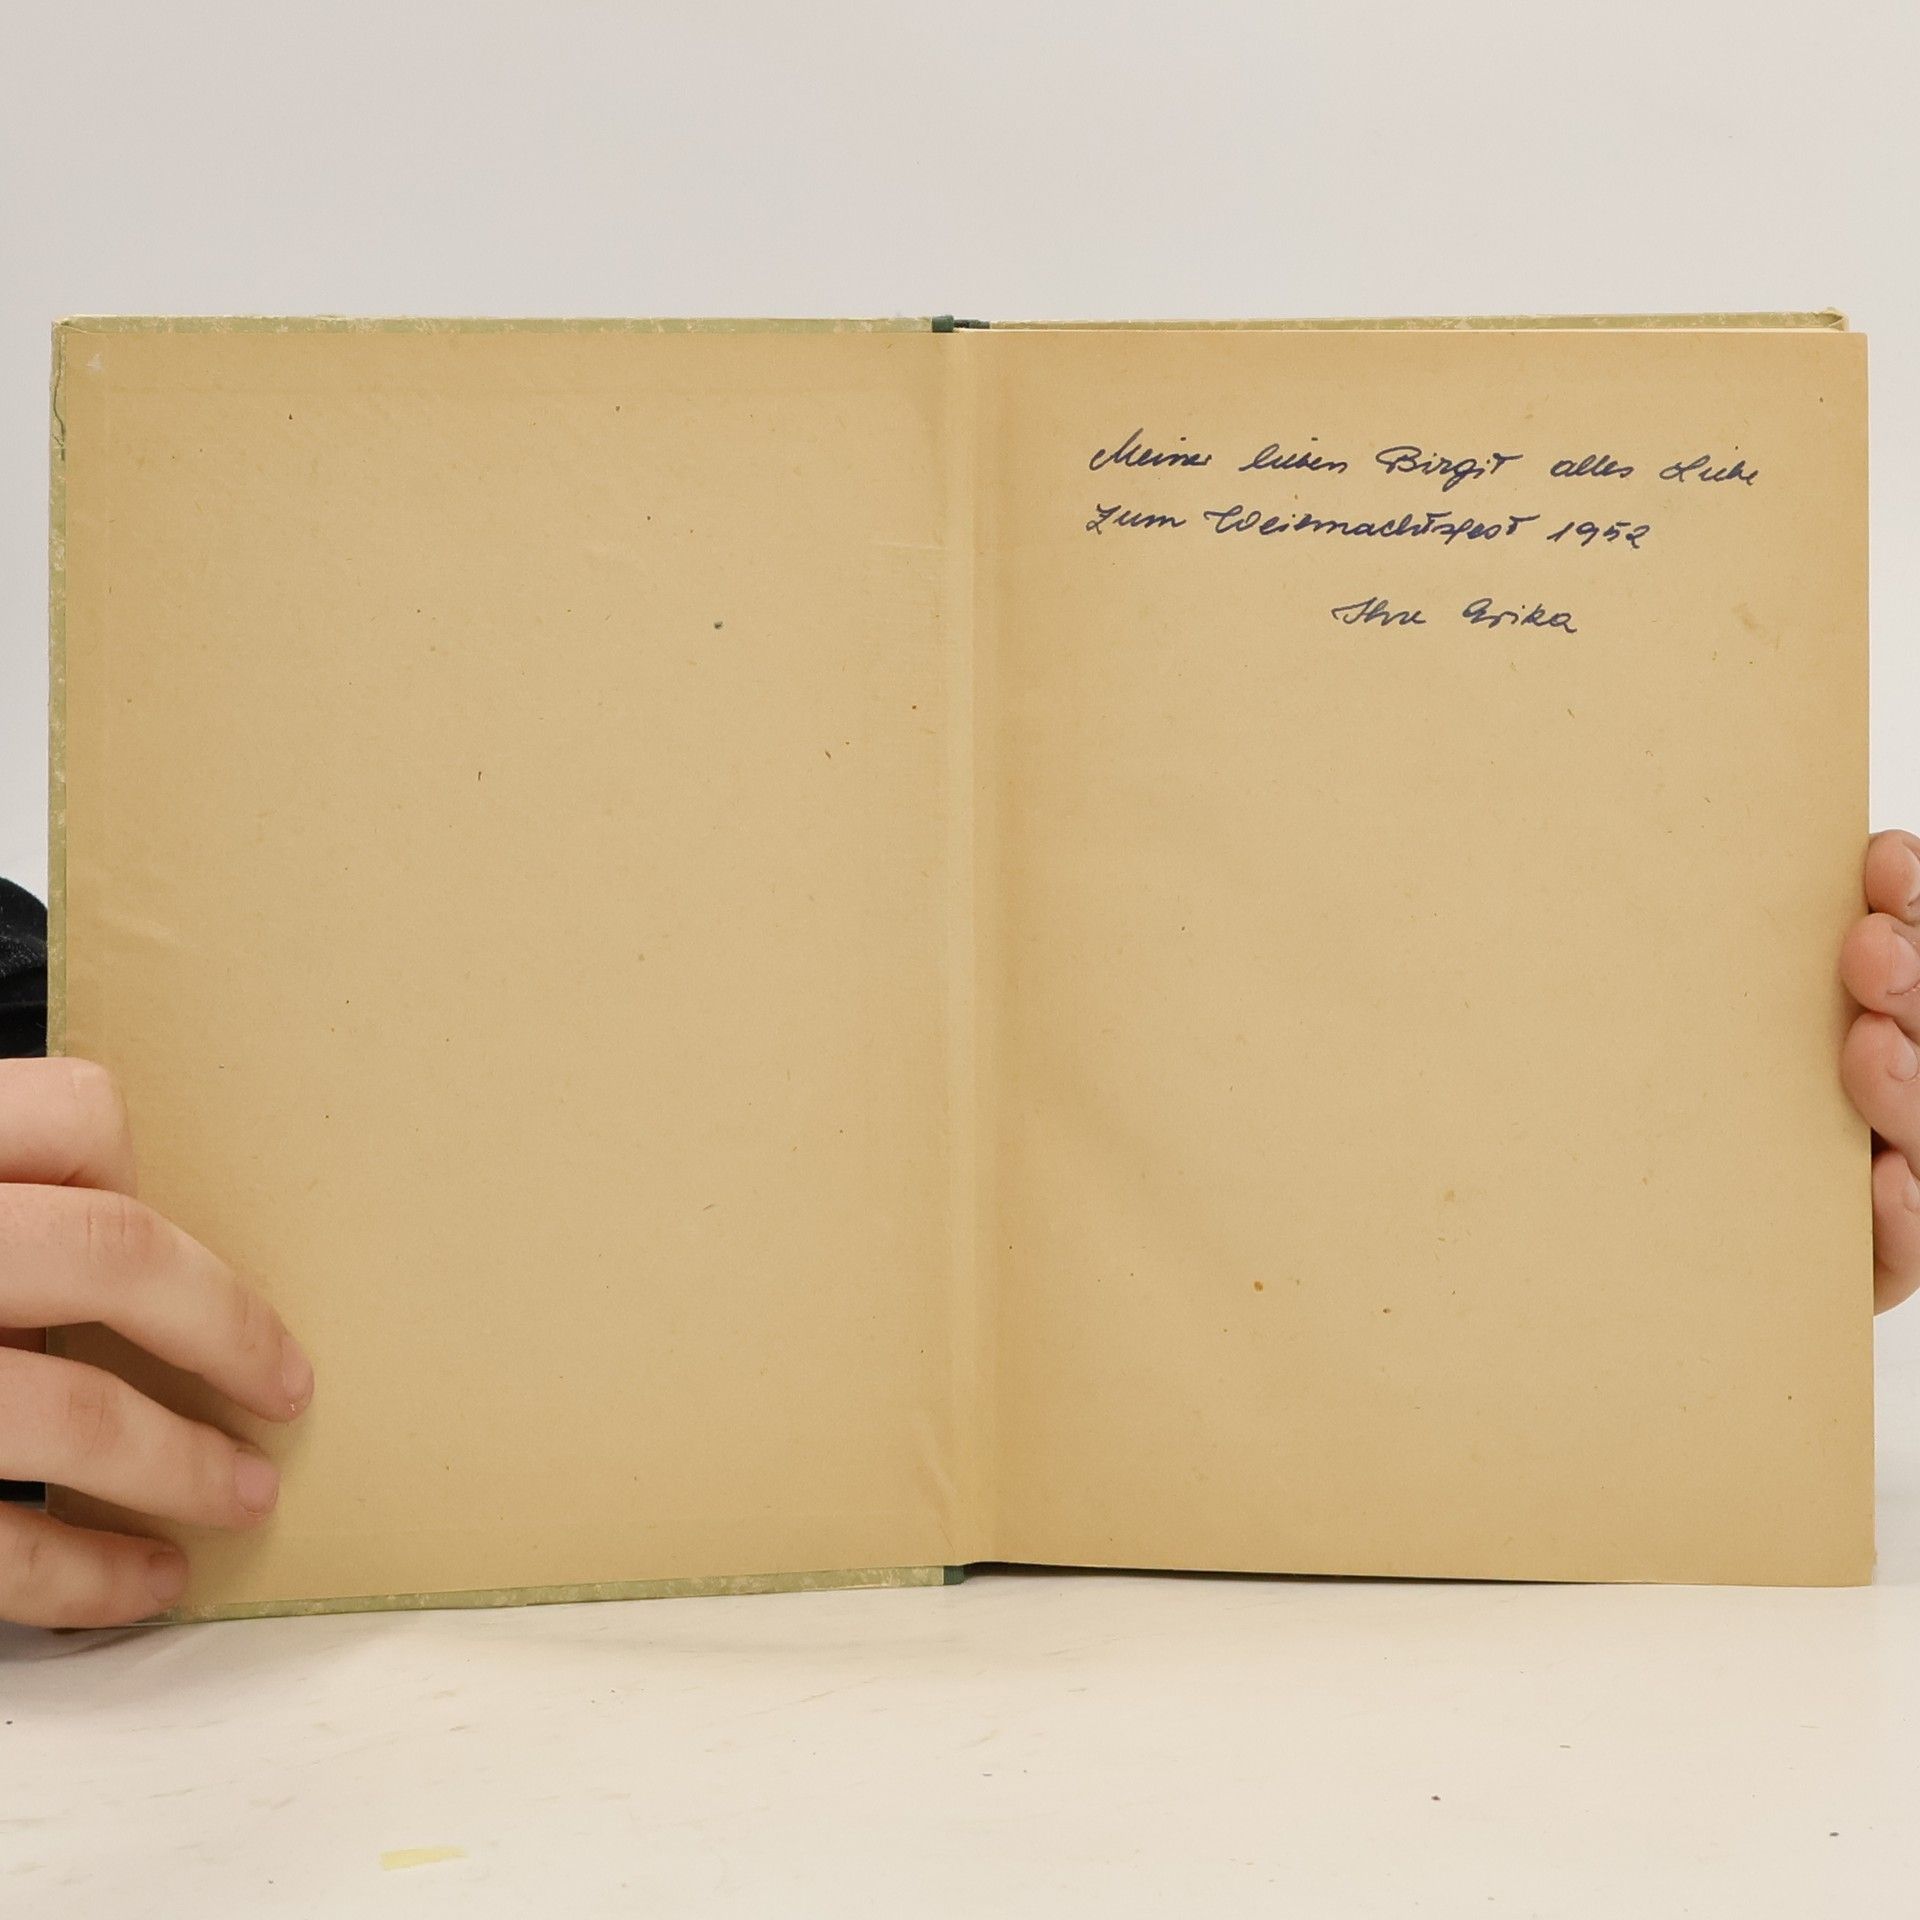 Meiner lieben Birgit alles Liebe
zum Weihnachtsfest 1952
Ihre Erika